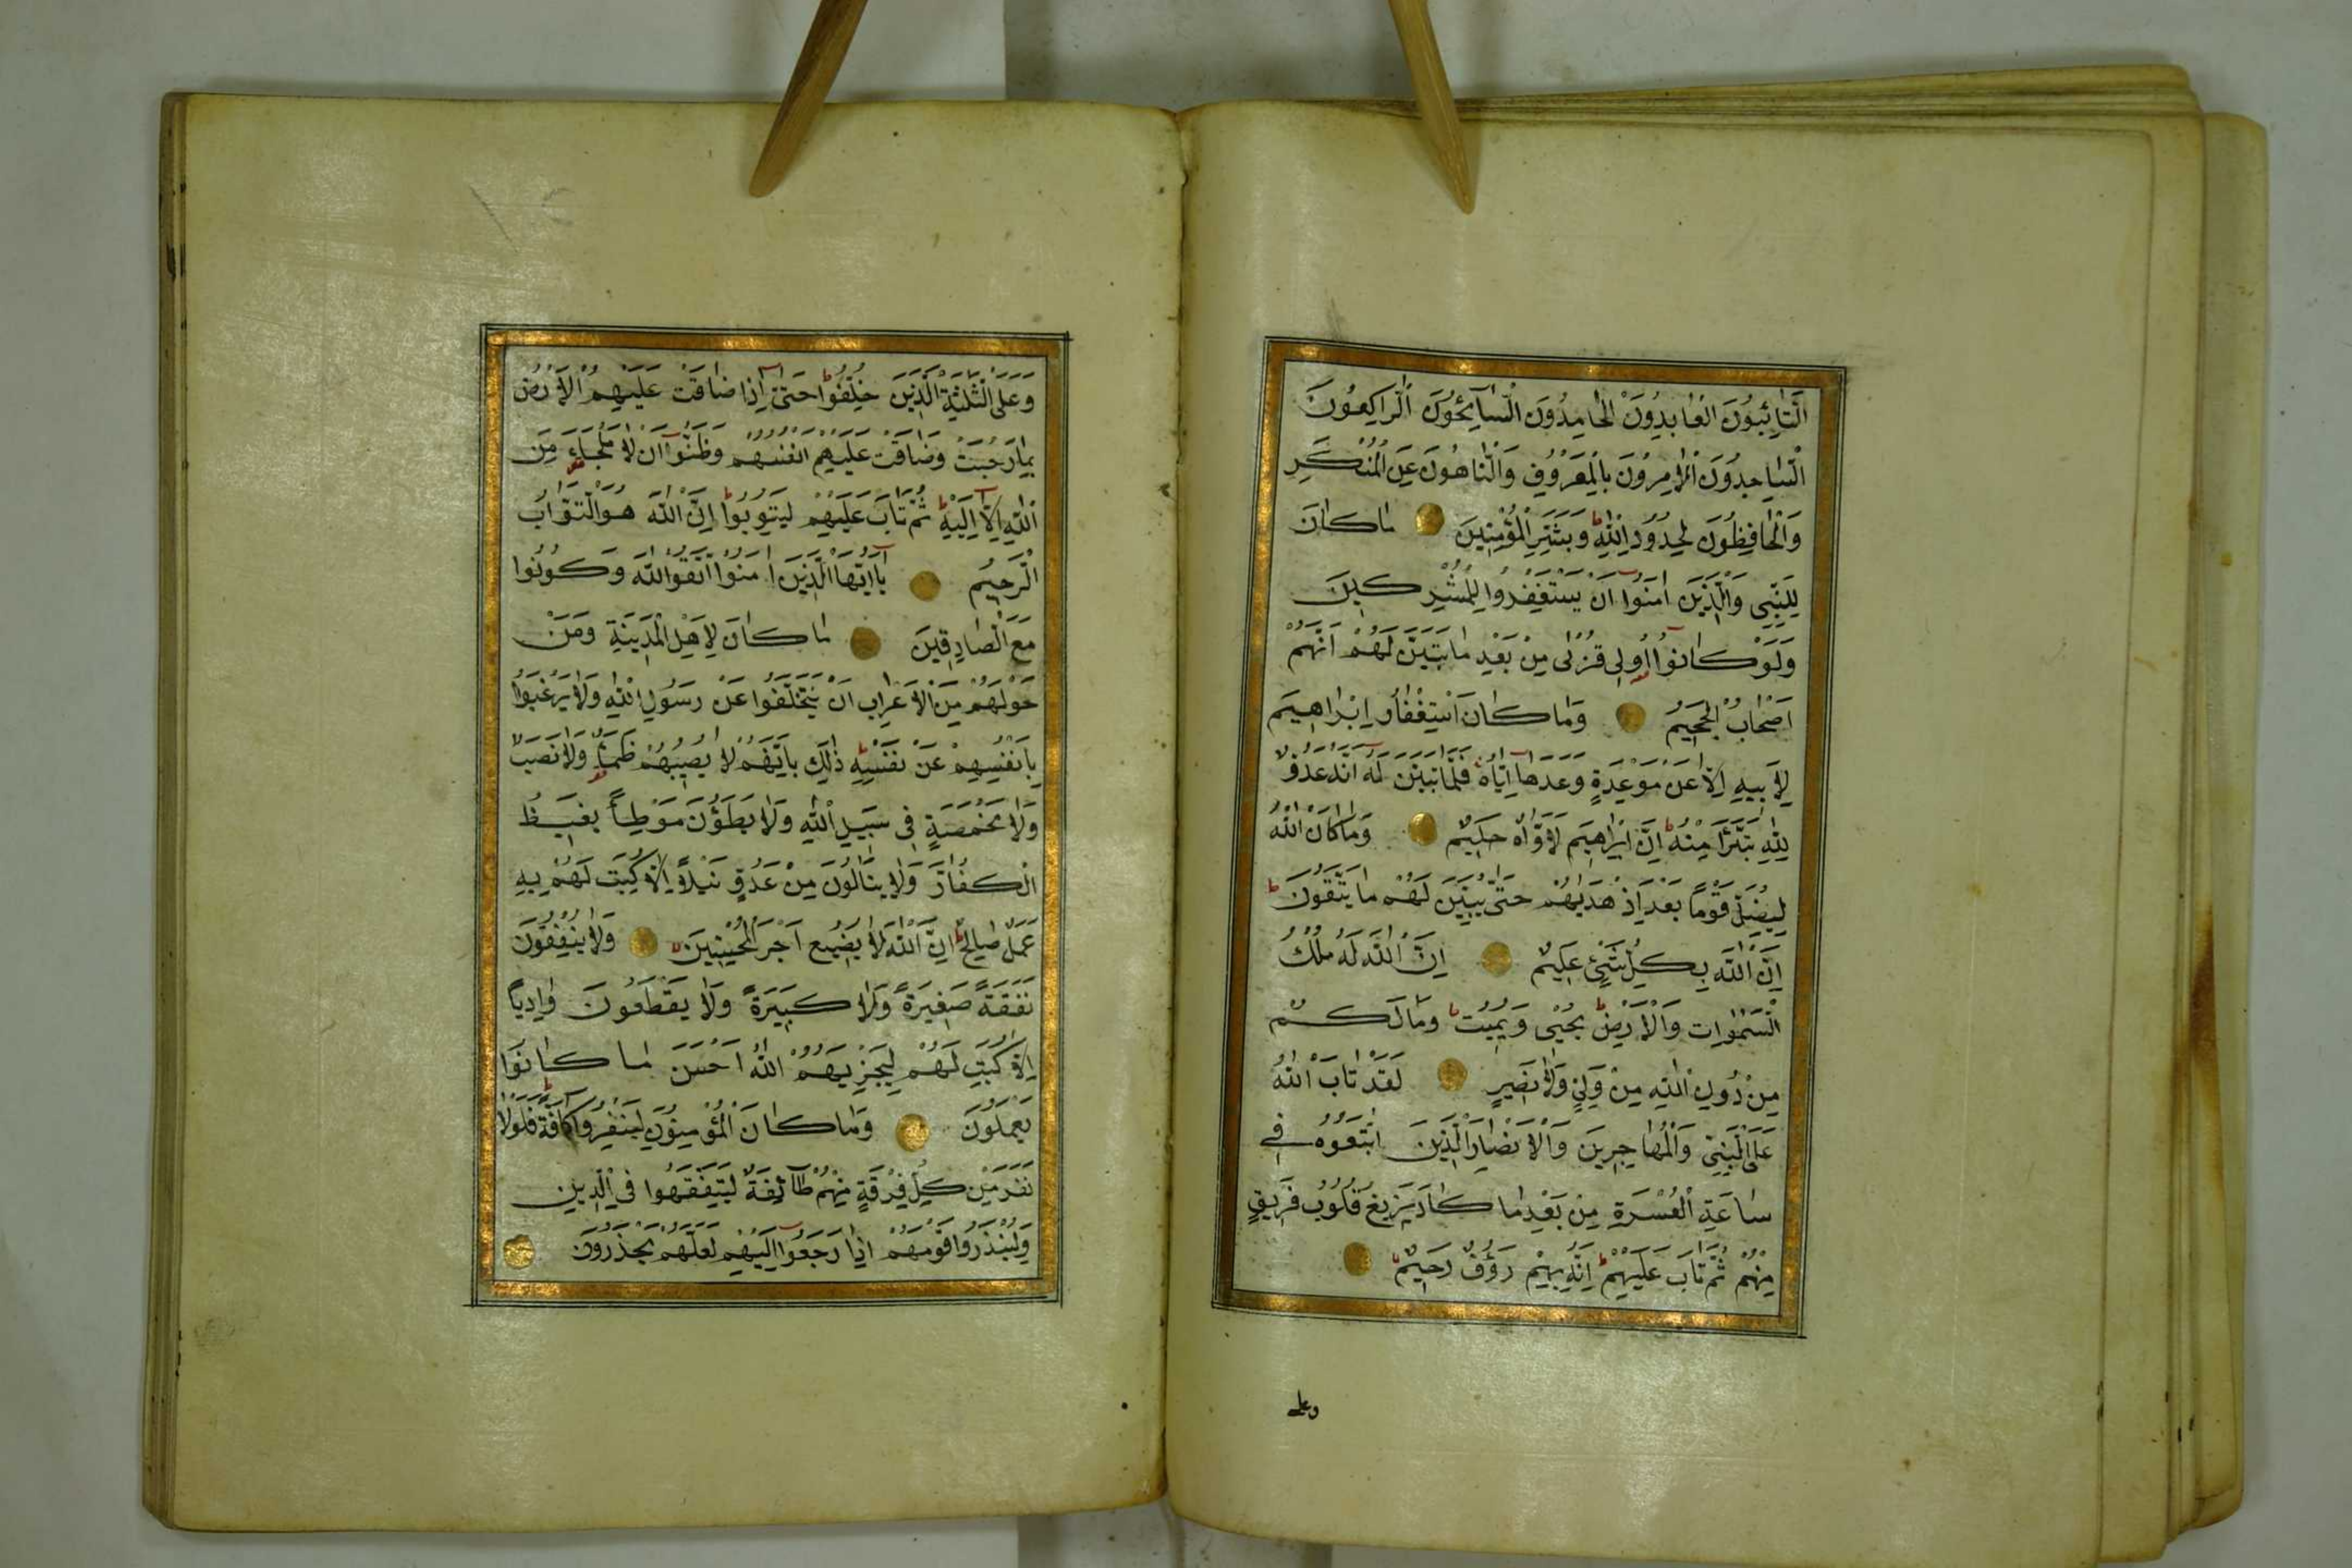 اَلتَّائِبُونَ الْعَابِدُونَ الْحَامِدُونَ السَّآئِحُونَ الرَّاكِعُونَ
السَّاجِدُونَ الْاٰمِرُونَ بِالْمَعْرُوفِ وَالنَّاهُونَ عَنِ الْمُنْكَرِ
وَالْحَافِظُونَ لِحُدُودِ اللّٰهِ ط وَبَشِّرِ الْمُؤْمِنِينَ مَا كَانَ
لِلنَّبِيِّ وَالَّذِينَ اٰمَنُوٓا اَنْ يَسْتَغْفِرُوا لِلْمُشْرِكِينَ
وَلَوْ كَانُوٓا اُولِى قُرْبٰى مِنْ بَعْدِ مَا تَبَيَّنَ لَهُمْ اَنَّهُمْ
اَصْحَابُ الْجَحِيمِ وَمَا كَانَ اسْتِغْفَارُ اِبْرَاهِيمَ
لِاَبِيهِ اِلَّا عَنْ مَوْعِدَةٍ وَعَدَهَآ اِيَّاهُ فَلَمَّا تَبَيَّنَ لَهُٓ اَنَّهُ عَدُوٌّ
لِلّٰهِ تَبَرَّاَ مِنْهُ ط اِنَّ اِبْرَاهِيمَ لَاَوَّاهٌ حَلِيمٌ وَمَا كَانَ اللّٰهُ
لِيُضِلَّ قَوْمًا بَعْدَ اِذْ هَدٰيهُمْ حَتّٰى يُبَيِّنَ لَهُمْ مَا يَتَّقُونَ ط
اِنَّ اللّٰهَ بِكُلِّ شَيْئٍ عَلِيمٌ اِنَّ اللّٰهَ لَهُ مُلْكُ
السَّمٰوَاتِ وَالْاَرْضِ ط يُحْيِى وَيُمِيتُ ط وَمَا لَكُمْ
مِنْ دُونِ اللّٰهِ مِنْ وَلِيٍّ وَلَا نَصِيرٍ لَقَدْ تَابَ اللّٰهُ
عَلَى النَّبِيِّ وَالْمُهَاجِرِينَ وَالْاَنْصَارِ الَّذِينَ اتَّبَعُوهُ فِى
سَاعَةِ الْعُسْرَةِ مِنْ بَعْدِ مَا كَادَ يَزِيغُ قُلُوبُ فَرِيقٍ
مِنْهُمْ ثُمَّ تَابَ عَلَيْهِمْ ط اِنَّهُ بِهِمْ رَؤُفٌ رَحِيمٌ
وعلى
وَعَلَى الثَّلٰثَةِ الَّذِينَ خُلِّفُوا ط حَتّٰٓى اِذَا ضَاقَتْ عَلَيْهِمُ الْاَرْضُ
بِمَا رَحُبَتْ وَضَاقَتْ عَلَيْهِمْ اَنْفُسُهُمْ وَظَنُّوٓا اَنْ لَا مَلْجَاَ مِنَ
اللّٰهِ اِلَّآ اِلَيْهِ ط ثُمَّ تَابَ عَلَيْهِمْ لِيَتُوبُوا ط اِنَّ اللّٰهَ هُوَ التَّوَّابُ
الرَّحِيمُ يَآ اَيُّهَا الَّذِينَ اٰمَنُوا اتَّقُوا اللّٰهَ وَكُونُوا
مَعَ الصَّادِقِينَ مَا كَانَ لِاَهْلِ الْمَدِينَةِ وَمَنْ
حَوْلَهُمْ مِنَ الْاَعْرَابِ اَنْ يَتَخَلَّفُوا عَنْ رَسُولِ اللّٰهِ وَلَا يَرْغَبُوا
بِاَنْفُسِهِمْ عَنْ نَفْسِهِ ط ذٰلِكَ بِاَنَّهُمْ لَا يُصِيبُهُمْ ظَمَاٌ وَلَا نَصَبٌ
وَلَا مَخْمَصَةٌ فِى سَبِيلِ اللّٰهِ وَلَا يَطَؤُنَ مَوْطِئًا يَغِيظُ
الْكُفَّارَ وَلَا يَنَالُونَ مِنْ عَدُوٍّ نَيْلًا اِلَّا كُتِبَ لَهُمْ بِهِ
عَمَلٌ صَالِحٌ ط اِنَّ اللّٰهَ لَا يُضِيعُ اَجْرَ الْمُحْسِنِينَ وَلَا يُنْفِقُونَ
نَفَقَةً صَغِيرَةً وَلَا كَبِيرَةً وَلَا يَقْطَعُونَ وَادِيًا
اِلَّا كُتِبَ لَهُمْ لِيَجْزِيَهُمُ اللّٰهُ اَحْسَنَ مَا كَانُوا
يَعْمَلُونَ وَمَا كَانَ الْمُؤْمِنُونَ لِيَنْفِرُوا كَآفَّةً ط فَلَوْلَا
نَفَرَ مِنْ كُلِّ فِرْقَةٍ مِنْهُمْ طَآئِفَةٌ لِيَتَفَقَّهُوا فِى الدِّينِ
وَلِيُنْذِرُوا قَوْمَهُمْ اِذَا رَجَعُوٓا اِلَيْهِمْ لَعَلَّهُمْ يَحْذَرُونَ